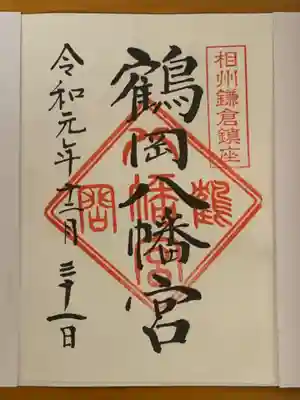 相州鎌倉鎮座
鶴岡八幡宮
鶴岡八幡宮
令和元年十二月三十一日